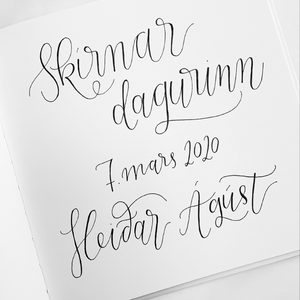 Skírnar
dagurinn
7. mars 2020
Heiðar Ágúst